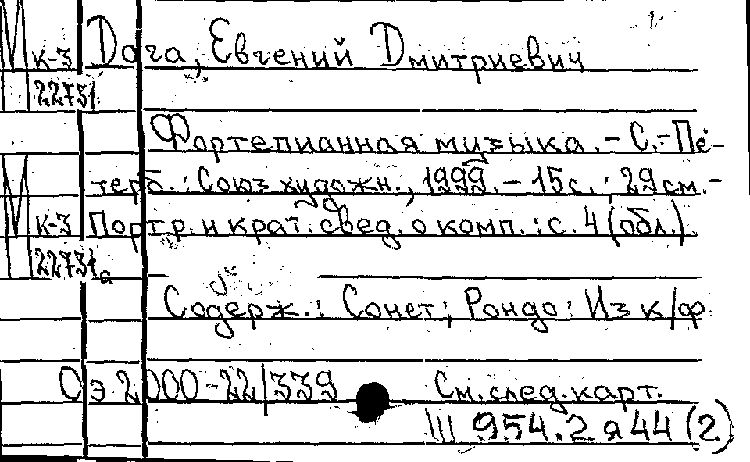 М к-3 Дога, Евгений Дмитриевич
22731
Фортепианная музыка. – С.-Пе-
терб.: Союз художн., 1999. – 15 с.; 29 см. –
М к-3 Портр. и крат. свед. о комп.: с. 4 (обл.).
22731а
Содерж.: Сонет; Рондо: Из к/ф
Оэ 2000-22/339 См. след. карт.
III 954.2 я 44 (2)